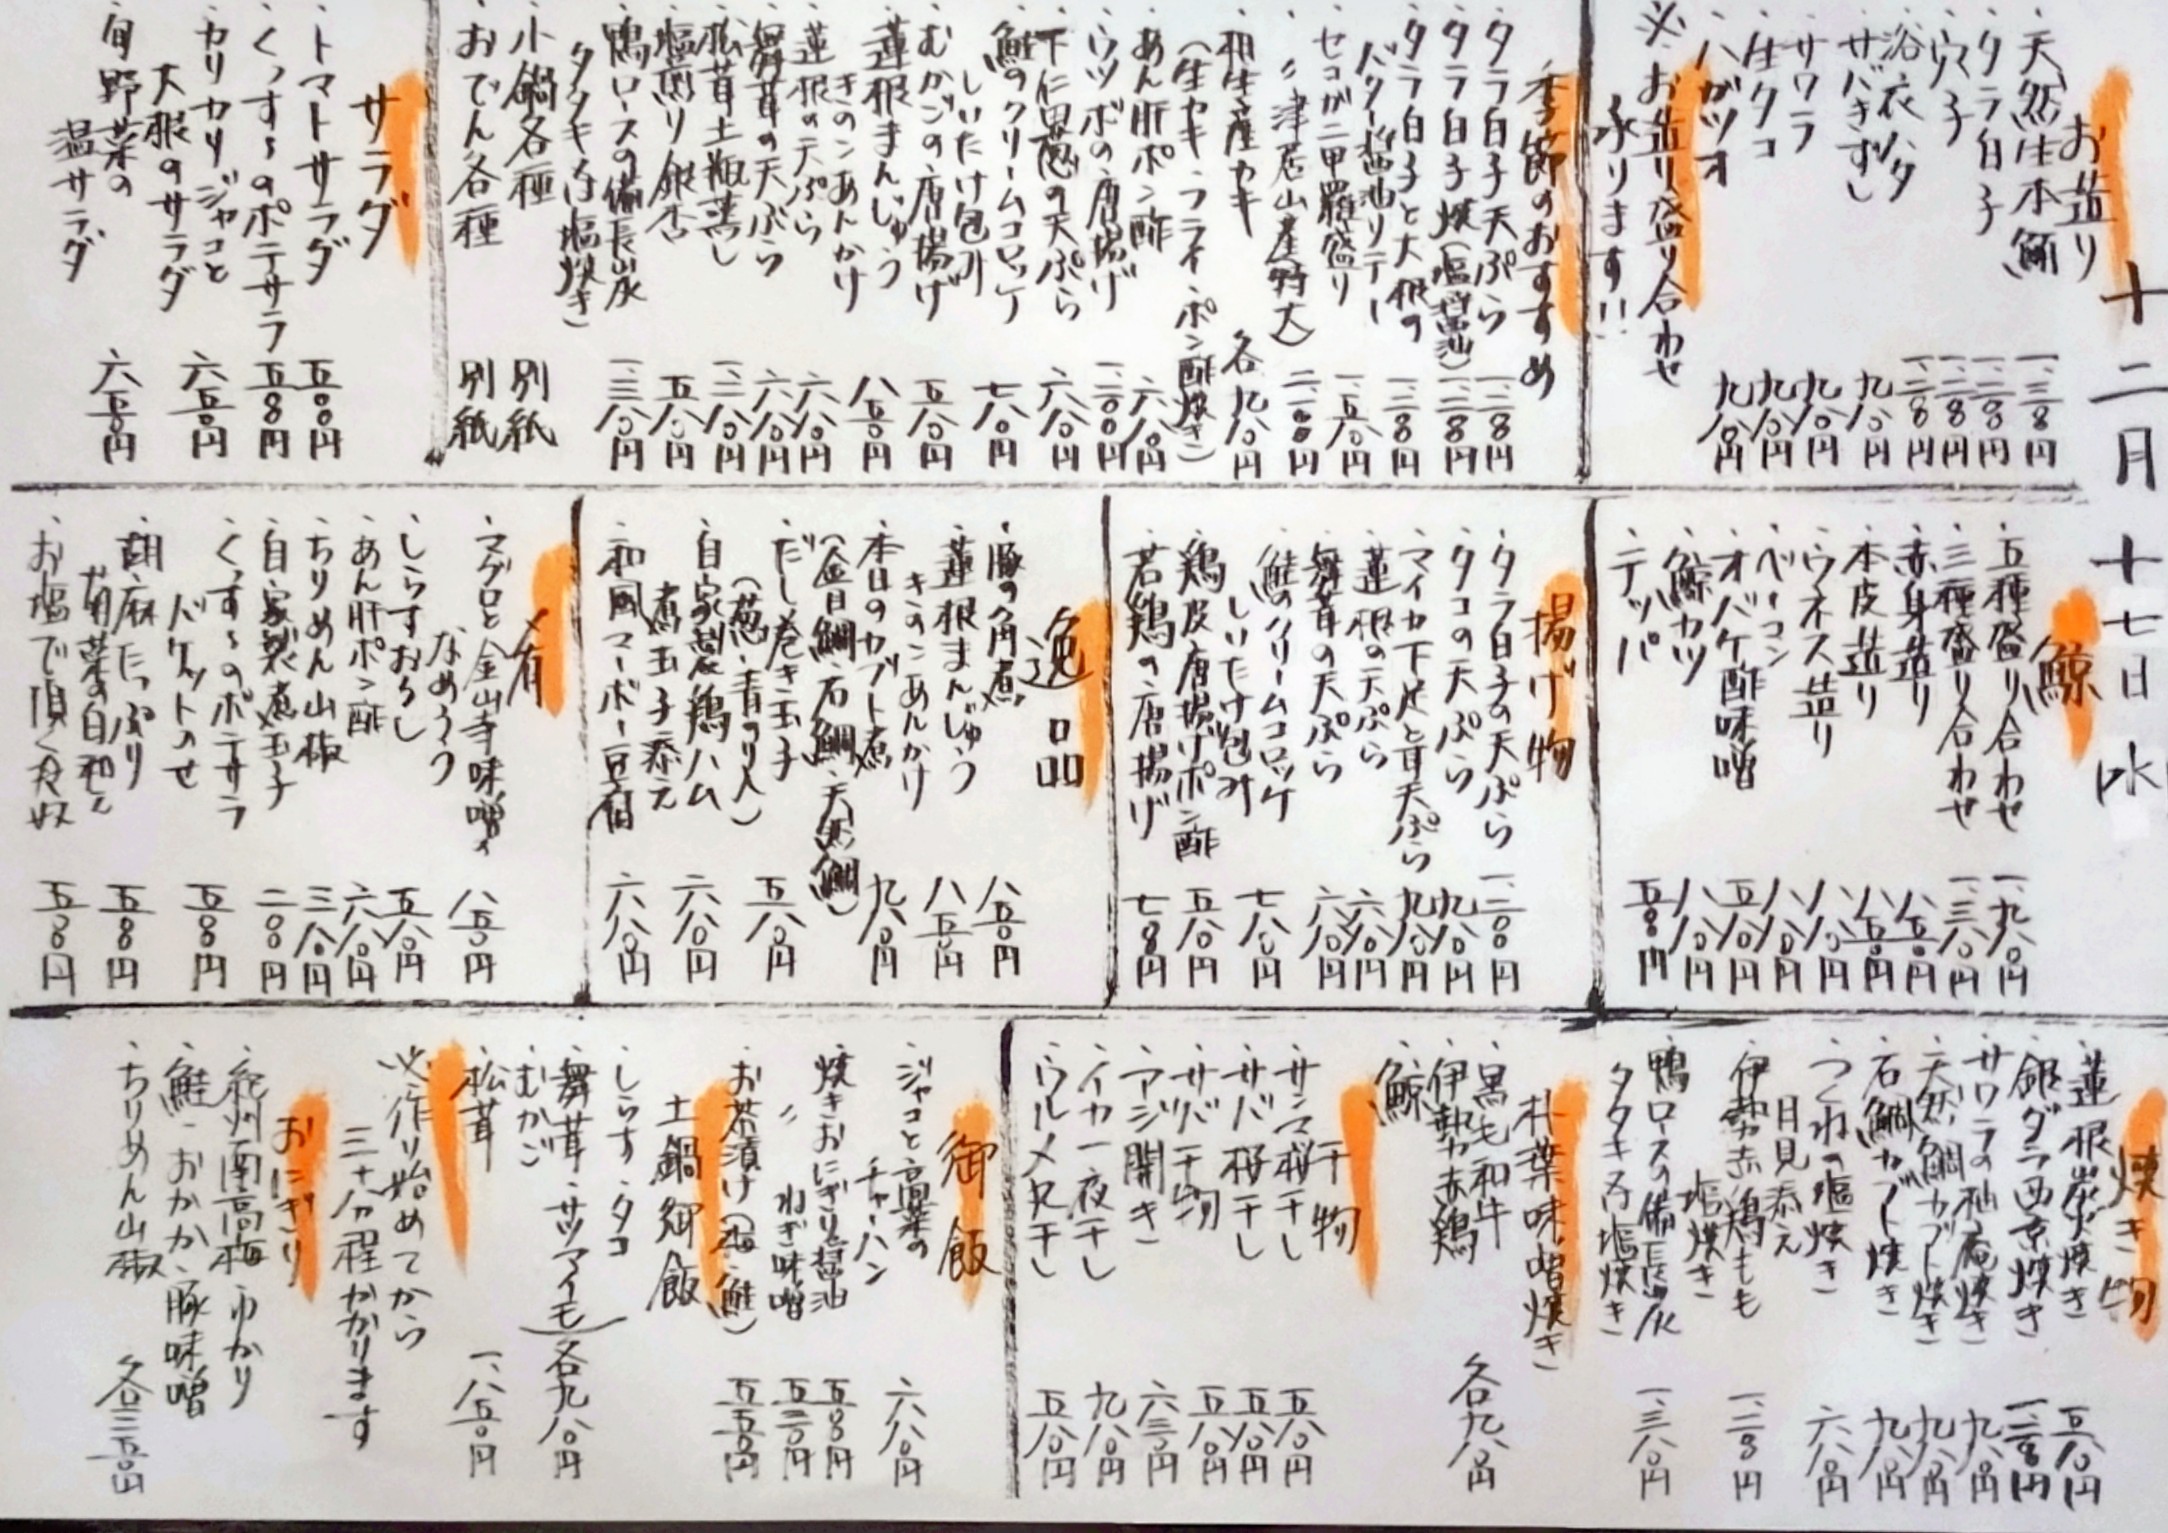 十二月十七日水
お造り
・天然生本鮪 一、三八〇円
・タラ白子 一、二八〇円
・ウニ 一、二八〇円
・浴衣ハタ 一、二八〇円
・サバきずし 九八〇円
・サワラ 九八〇円
・生タコ 九八〇円
・ハガツオ 九八〇円
※お造り盛り合わせ
承ります!!
季節のおすすめ
・タラ白子天ぷら 一、二八〇円
・タラ白子焼(塩・醤油) 一、二八〇円
・タラ白子と大根の
バター醤油ソテー 一、三八〇円
・セコガニ甲羅盛り 一、五八〇円
・〃津居山産(特大) 二、一八〇円
・相生産カキ
(生カキ・フライ・ポン酢・焼き) 各九八〇円
・あん肝ポン酢 六八〇円
・ウツボの唐揚げ 一、二〇〇円
・下仁田葱の天ぷら 六八〇円
・鮭のクリームコロッケ
しいたけ包み 七八〇円
・むかごの唐揚げ 五八〇円
・蓮根まんじゅう
きのこあんかけ 八五〇円
・蓮根の天ぷら 六八〇円
・舞茸の天ぷら 六八〇円
・松茸土瓶蒸し 一、二八〇円
・塩煎り銀杏 五八〇円
・鴨ロースの備長炭
タタキ(or塩焼き) 一、三八〇円
・小鍋各種 別紙
・おでん各種 別紙
サラダ
・トマトサラダ 五〇〇円
・くっす〜のポテサラ 五〇〇円
・カリカリジャコと
大根のサラダ 六五〇円
・旬野菜の
温サラダ 六五〇円
鯨
・五種盛り合わせ 一、九八〇円
・三種盛り合わせ 一、三八〇円
・赤身造り 八五〇円
・本皮造り 八五〇円
・ウネス造り 八八〇円
・ベーコン 八八〇円
・オバケ酢味噌 五八〇円
・鯨カツ 八八〇円
・テッパ 五〇〇円
揚げ物
・タラ白子の天ぷら 一、二〇〇円
・タコの天ぷら 九八〇円
・マイカ下足と耳天ぷら 九八〇円
・蓮根の天ぷら 六八〇円
・舞茸の天ぷら 六八〇円
・鮭のクリームコロッケ
しいたけ包み 七八〇円
・鶏皮唐揚げポン酢 五八〇円
・若鶏の唐揚げ 七〇〇円
逸品
・豚の角煮 八五〇円
・蓮根まんじゅう
きのこあんかけ 八五〇円
・本日のカブト煮
(金目鯛・石鯛・天然鯛) 九八〇円
・だし巻き玉子
(葱・青のり入) 五八〇円
・自家製鶏ハム
煮玉子添え 六八〇円
・和風マーボー豆腐 六八〇円
肴
・マグロと金山寺味噌の
なめろう 八五〇円
・しらすおろし 五八〇円
・あん肝ポン酢 六八〇円
・ちりめん山椒 三八〇円
・自家製煮玉子 二〇〇円
・くっす〜のポテサラ
バケットのせ 五〇〇円
・胡麻たっぷり
菊菜の白和え 五〇〇円
・お塩で頂く冷奴 五〇〇円
焼き物
・蓮根炭火焼き 五八〇円
・銀ダラ西京焼き 一、二八〇円
・サワラの柚庵焼き 九八〇円
・天然鯛カブト焼き 九八〇円
・石鯛カブト焼き 九八〇円
・つくねの塩焼き
月見添え 六八〇円
・伊勢赤鶏もも
塩焼き 一、二〇〇円
・鴨ロースの備長炭
タタキor塩焼き 一、三八〇円
朴葉味噌焼き
・黒毛和牛
・伊勢赤鶏
・鯨 各九八〇円
干物
・サンマ桜干し 五八〇円
・サバ桜干し 五八〇円
・サバ干物 五八〇円
・アジ開き 六三〇円
・イカ一夜干し 九八〇円
・ウルメ丸干し 五八〇円
御飯
・ジャコと高菜の
チャーハン 六八〇円
・焼きおにぎり 醤油 五〇〇円
〃 ねぎ味噌 五三〇円
・お茶漬け(梅・鮭) 五五〇円
土鍋御飯
・しらす・タコ
舞茸・サツマイモ
むかご 各九八〇円
・松茸 一、八五〇円
※作り始めてから
三十分程かかります
おにぎり
・紀州南高梅・ゆかり
・鮭・おかか・豚味噌
・ちりめん山椒 各三五〇円